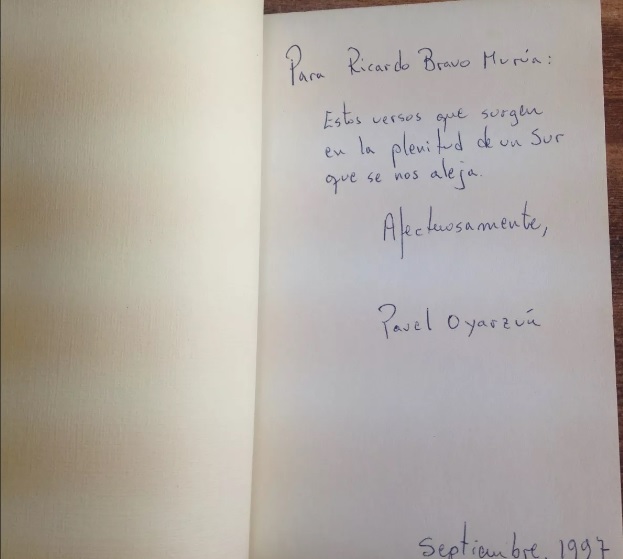 Para Ricardo Bravo Murúa:
Estos versos que surgen
en la plenitud de un Sur
que se nos aleja.
Afectuosamente,
Pavel Oyarzún
Septiembre, 1997